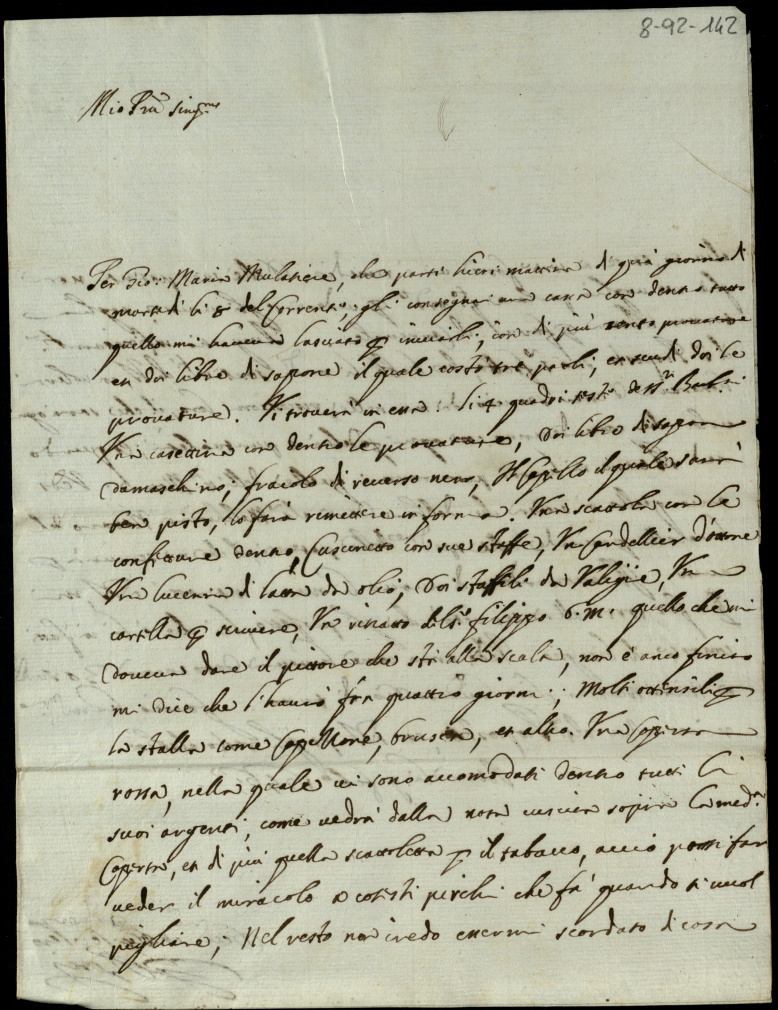 8-92-142
Mio Prã sing.mo
Per Gio: Maria Mulatiere, che partì hieri mattina di quà giorno di
martedi li 8 del Corrente, gli consegnai una cassa con dentro tutto
quello mi haveva lasciato p inviarli, con di più cento provature
et doi libre di sapone il quale costò tre paoli, et scudi doi le
provature. Vi troverà in essa: li 4 quadri
Una casettina con dentro le provature, Doi libre di sapone
damaschino, fraiolo di reverso nero, Il Capello il quale sarà
ben pisto, lo farà rimettere in forma. Una scattola con le
confetture dentro, Cuscinetto con sue staffe, Un Candellier d'ottone
Una lucerna di latta da olio, Doi staffili da Valigie, Una
cartella p scrivere, Un ritratto del S.r filippo b.m. quello che mi
doveva dare il pittore che stà alla scala, non è anco finito
mi dice che l'haverò fra quattro giorni; Molti ottensili p
la stalla come Capellone, brusca, et altro. Una Coperta
rossa, nella quale vi sono accomodati dentro tutti li
suoi argenti, come vedrà dalla nota cuscita sopra la med.a
Coperta, et di più quella scattoletta p il tabacco, acciò possi far
veder il miracolo a cotesti che fà quando si vuol
pigliare; Nel resto non credo essermi scordato di cosa